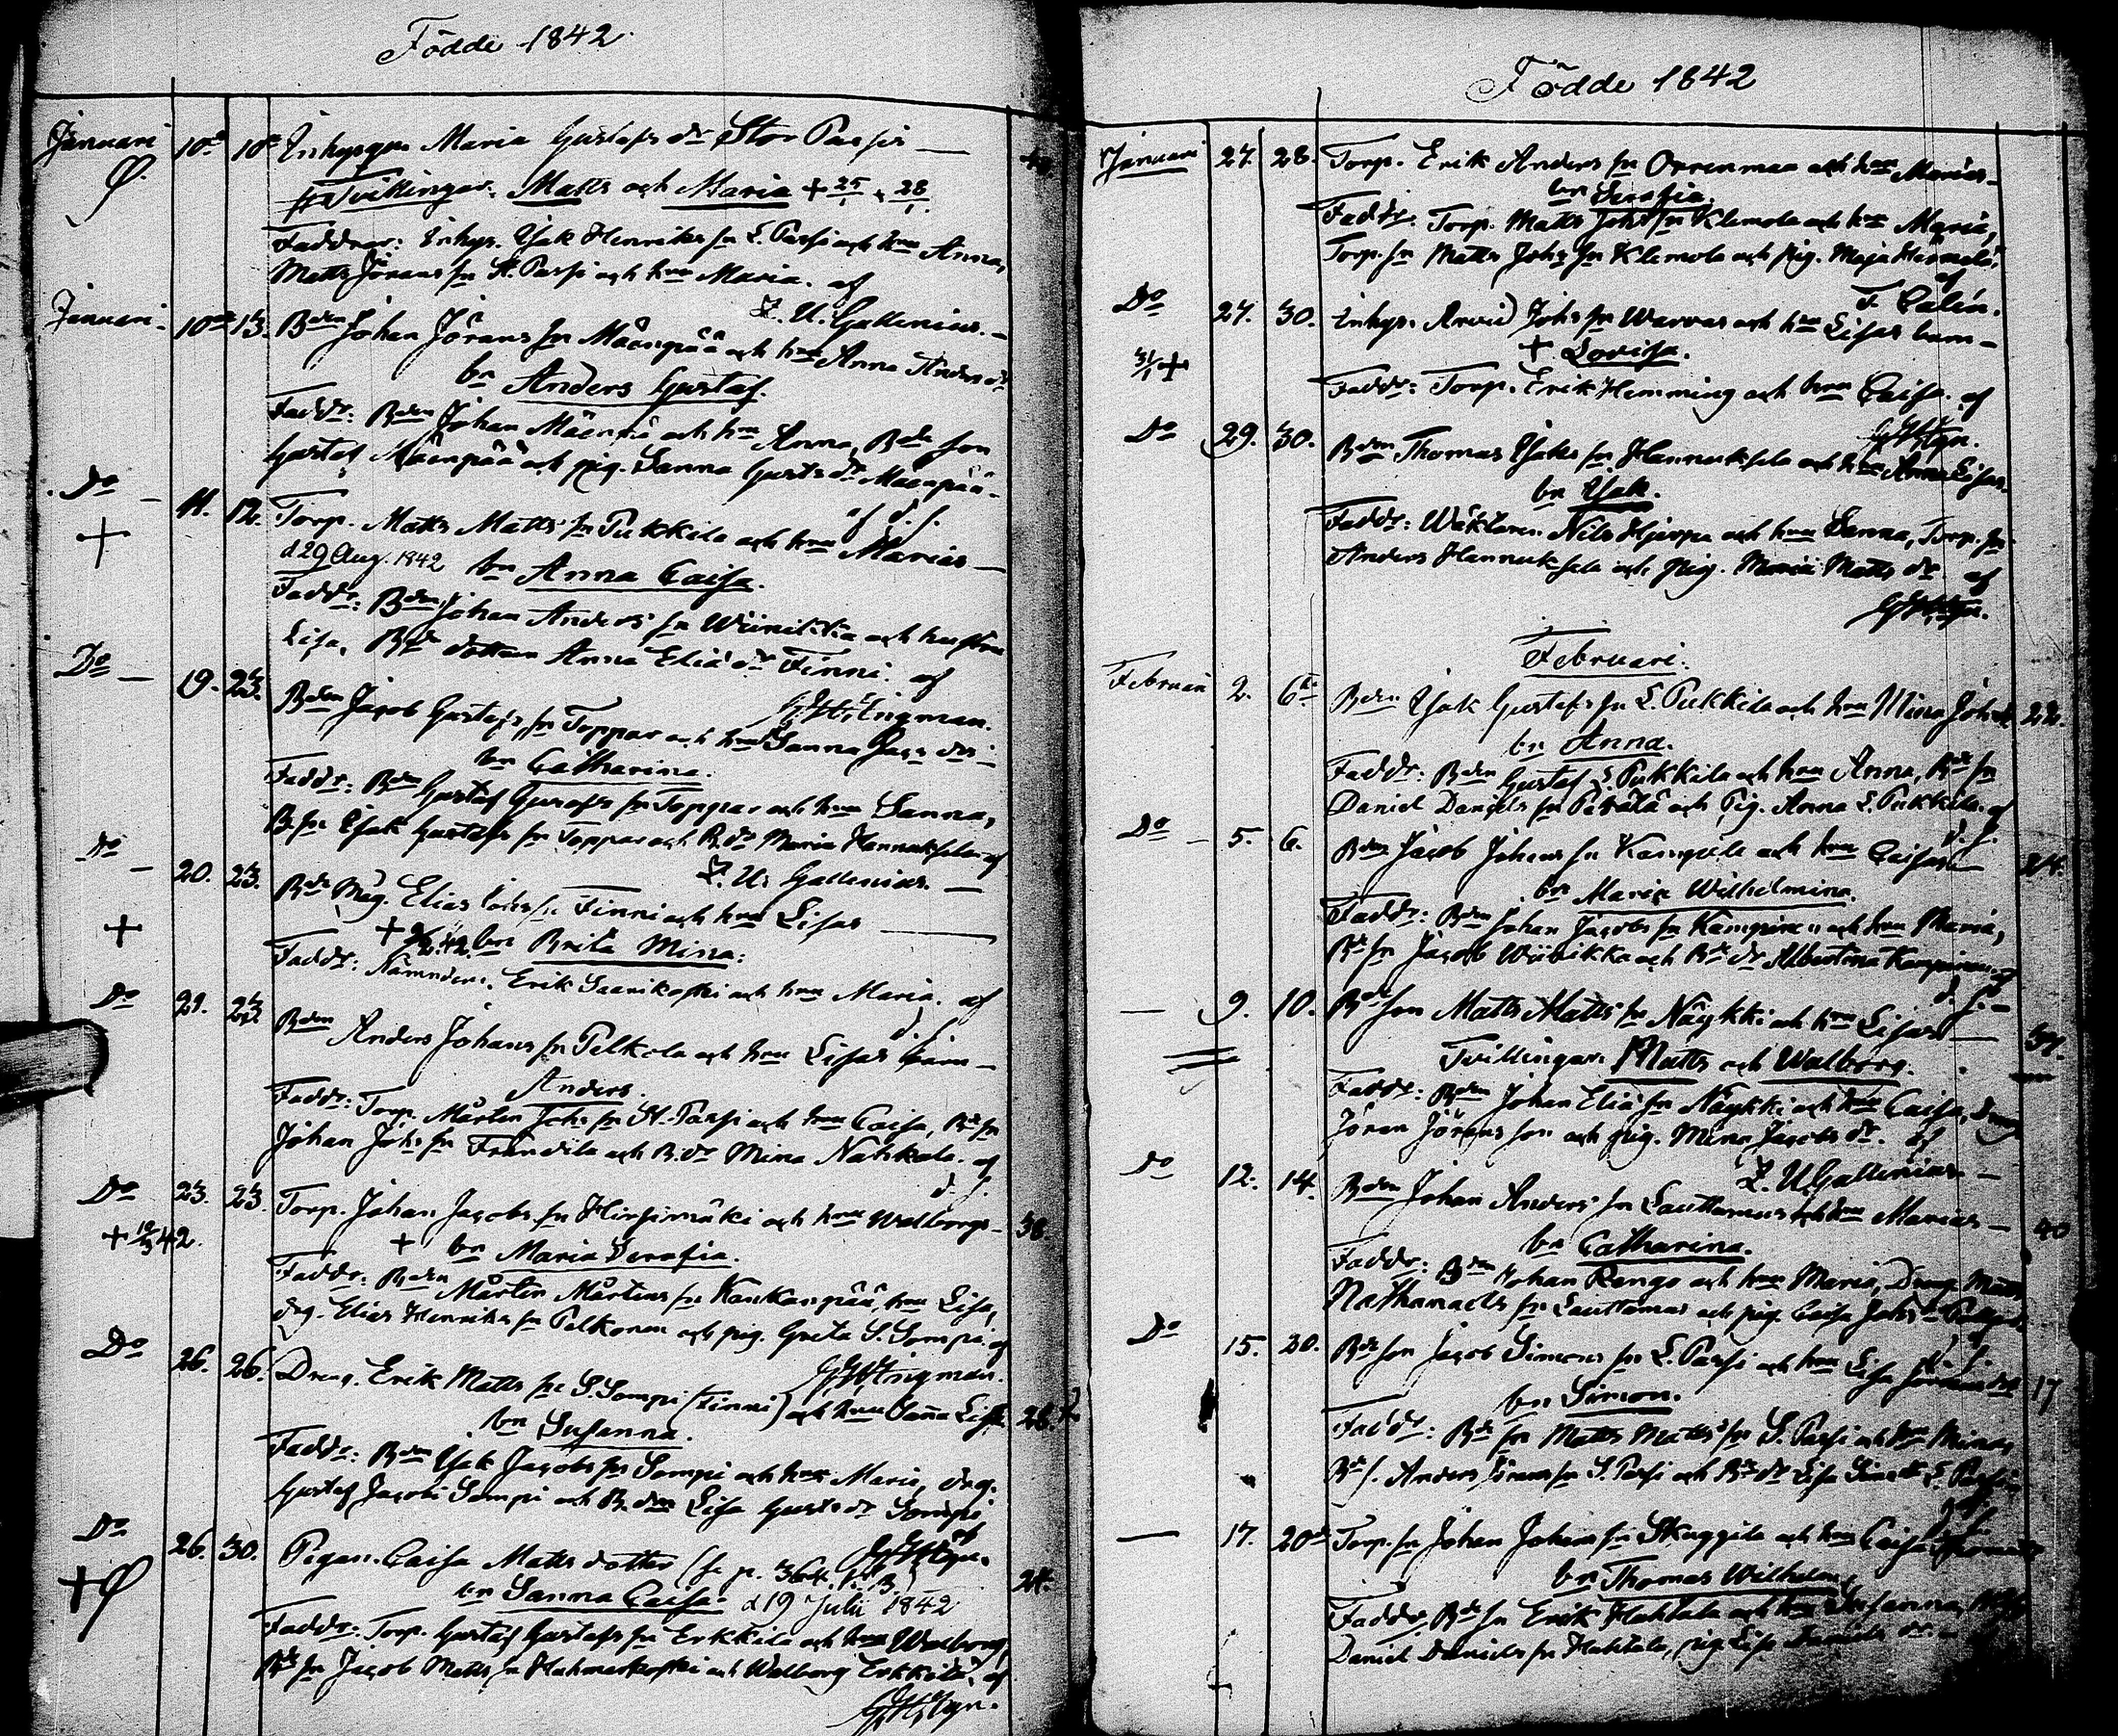 Födde 1842.
Januari 10de 10de Inhysqn Maria Gustafs dr Stor Passis —
Tvillingar. Matts och Maria + 25/1 . 28/1.
Faddrar: Inhys. Isak Henriks sn L. Passi och hru Anna,
Matts Jörans sn St. Passi och hru Maria. af
Z. U. Gallenius. —
Januari 10de 13. Bden Johan Jörans sn Mäenpää och hru Anna Anders dr
bn Anders Gustaf.
Faddr: Bden Johan Mäenpä och hru Anna, Bde son
Gustaf Mäenpää och pig. Sanna Gusts dr Mäenpää.
af d. s.
Do — 11. 12. Torp. Matts Matts sn Pukkila och hru Marias —
+ d 29 Aug. 1842 bn Anna Caisa.
Faddr: Bden Johan Anders sn Wiinikka och hustru
Lisa, Bde dottern Anna Elia dr Finni. af
G. H. Engman.
Do — 19. 23. Bden Jacob Gustafs sn Toppar och hru Sanna Jacs drs
bn Catharina.
Faddr: Bden Gustaf Gustafs sn Toppar och hru Sanna,
B. sn Isak Gustafs sn Toppar och B. dr Maria Hannuksela af
Z. U. Gallenius. —
Do — 20. 23. Bde Måg. Elias sn Finni och hru Lisas
+ + bn Brita Mina:
Faddr: Nämndem. Erik Saarikoski och hru Maria. af
d. s.
Do 21. 23. Bden Anders Johans sn Pelkola och hru Lisas barn —
Anders.
Faddr: Torp. Mårten Johs sn St. Passi och hru Caisa, Bde sn
Johan Johs sn Frändilä och B. dr Mina Nahkala. af
d. s.
Do 23. 23. Torp. Johan Jacobs sn Hirsimäki och hru Walborgs — 38.
+ 19/3 42. + bn Maria Serafia.
Faddr: Bden Mårten Mårtens sn Kankanpää, hru Lisa,
drg. Elias Henriks sn Pelkonen och pig. Greta S. Sompi. af
G. H. Engman.
Do 26. 26. Dreng. Erik Matts sn S. Sompi (Finni) och hru Sanna Lisas 28.
bn Susanna.
Faddr: Bden Isak Jacobs sn Sompi och hru Maria, drg.
Gustaf Jacobs Sompi och B. dr Lisa Gusts dr Sompi
af
Do 26. 30. Pigan. Caisa Matts dotter (se p. 24.
+ bn Sanna Caisa. d 19 Julii 1842
Faddr: Torp. Gustaf Gustafs sn Erkkila och hru Walborg,
Bde sn Jacob Matts sn Hahmaskoski och Walborg Erkkila. af
Födde 1842
Januari 27. 28. Torp. Erik Anders sn Orrenmaa och hru Marias —
bn Serafia.
Faddr. Torp. Matts Johs sn Klemola och hru Maria,
Torp. sn Matts Johs sn Klemola och pig. Maja
af
F. Calén.
Do 27. 30. Inhys. Arvid Johs sn Warvas och hru Lisas barn —
31/1 + + Lovisa.
Faddr: Torp. Erik Hemming och hru Caisa. af
Do 29. 30. Bden Thomas Isaks sn Hannuksela och hru Anna Lisas
bn Isak.
Faddr: Wäktaren Nils Hjerpe och hru Sanna, Torp. sn
Anders Hannuksela och pig. Maria Matts dr af
Februari.
Februari 2. 6te Bden Isak Gustafs sn L. Pukkila och hru Mina Johs 22.
bn Anna.
Faddr: Bden Gustaf L. Pukkila och hru Anna, Bde sn
Daniel Daniels sn Peräla och Pig. Anna L. Pukkila. af
d. s.
Do — 5. 6. Bden Jacob Johans sn och hru Caisas 24.
bn Maria Wilhelmina.
Faddr: Bden Johan Jacobs sn Kampinen och hru Maria,
Bde sn Jacob Wiinikka och Bde dr Albertina Kampinen af
d. s. —
— 9. 10. Bde son Matts Matts sn Näykki och hru Lisas — 37.
Tvillingar. Matts och Walborg.
Faddr: Bden Johan Elias sn Näykki och hru Caisa, dreng
Jöran Jörans son och pig. Mina Jacobs dr. af
Z. U. Gallenius —
Do 12. 14. Bden Johan Anders sn Lauttamus och hru Marias — 40
bn Catharina.
Faddr: Bden Johan Rango och hru Maria, Dreng Matts
Nathanaels sn Lauttamus och pig. Caisa Johs dr
d. s.
Do 15. 20. Bde son Jacob Simons sn L. Passi och hru Lisa Jörans drs 17
bn Simon.
Faddr: Bde sn Matts Matts sn S. Passi och hru Mina,
Bde s. Anders Jörans sn S. Passi och Bde dr Lisa Passi
— 17. 20de Torp. sn Johan Johans sn Skuggila och hru Caisa
bn Thomas Wilhelm.
Faddr. Bde sn Erik Hahtala och hru Susanna,
Daniel Daniels sn Hahtala, pig. Lisa Daniels dr